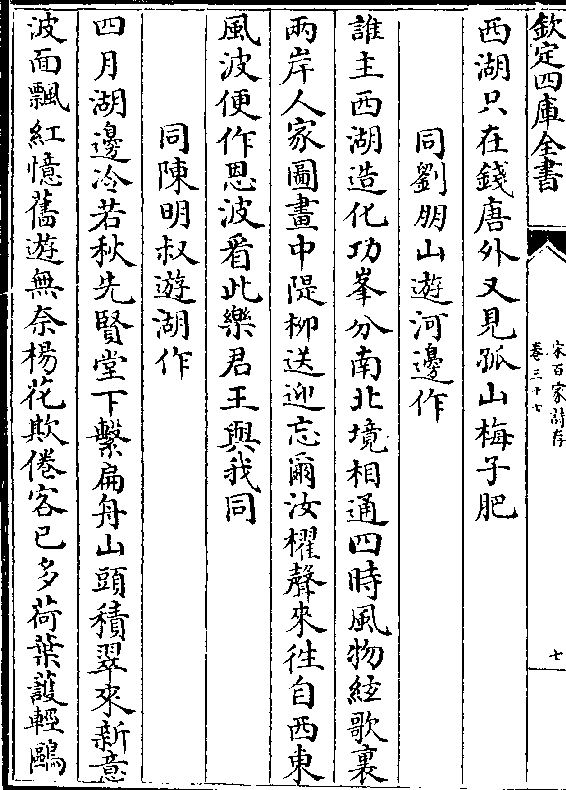 欽定四庫全書
宋百家詩存
卷三十七
七
西湖只在錢唐外又見孤山梅子肥
同劉朋山遊河邊作
誰主西湖造化功峯分南北境相通四時風物絃歌裏
兩岸人家圖畫中隄柳送迎忘爾汝櫂聲來徃自西東
風波便作恩波看此樂君王與我同
同陳明叔遊湖作
四月湖邊冷若秋先賢堂下繫扁舟山頭積翠來新意
波面飄紅憶舊遊無奈楊花欺倦客已多荷葉護輕鷗